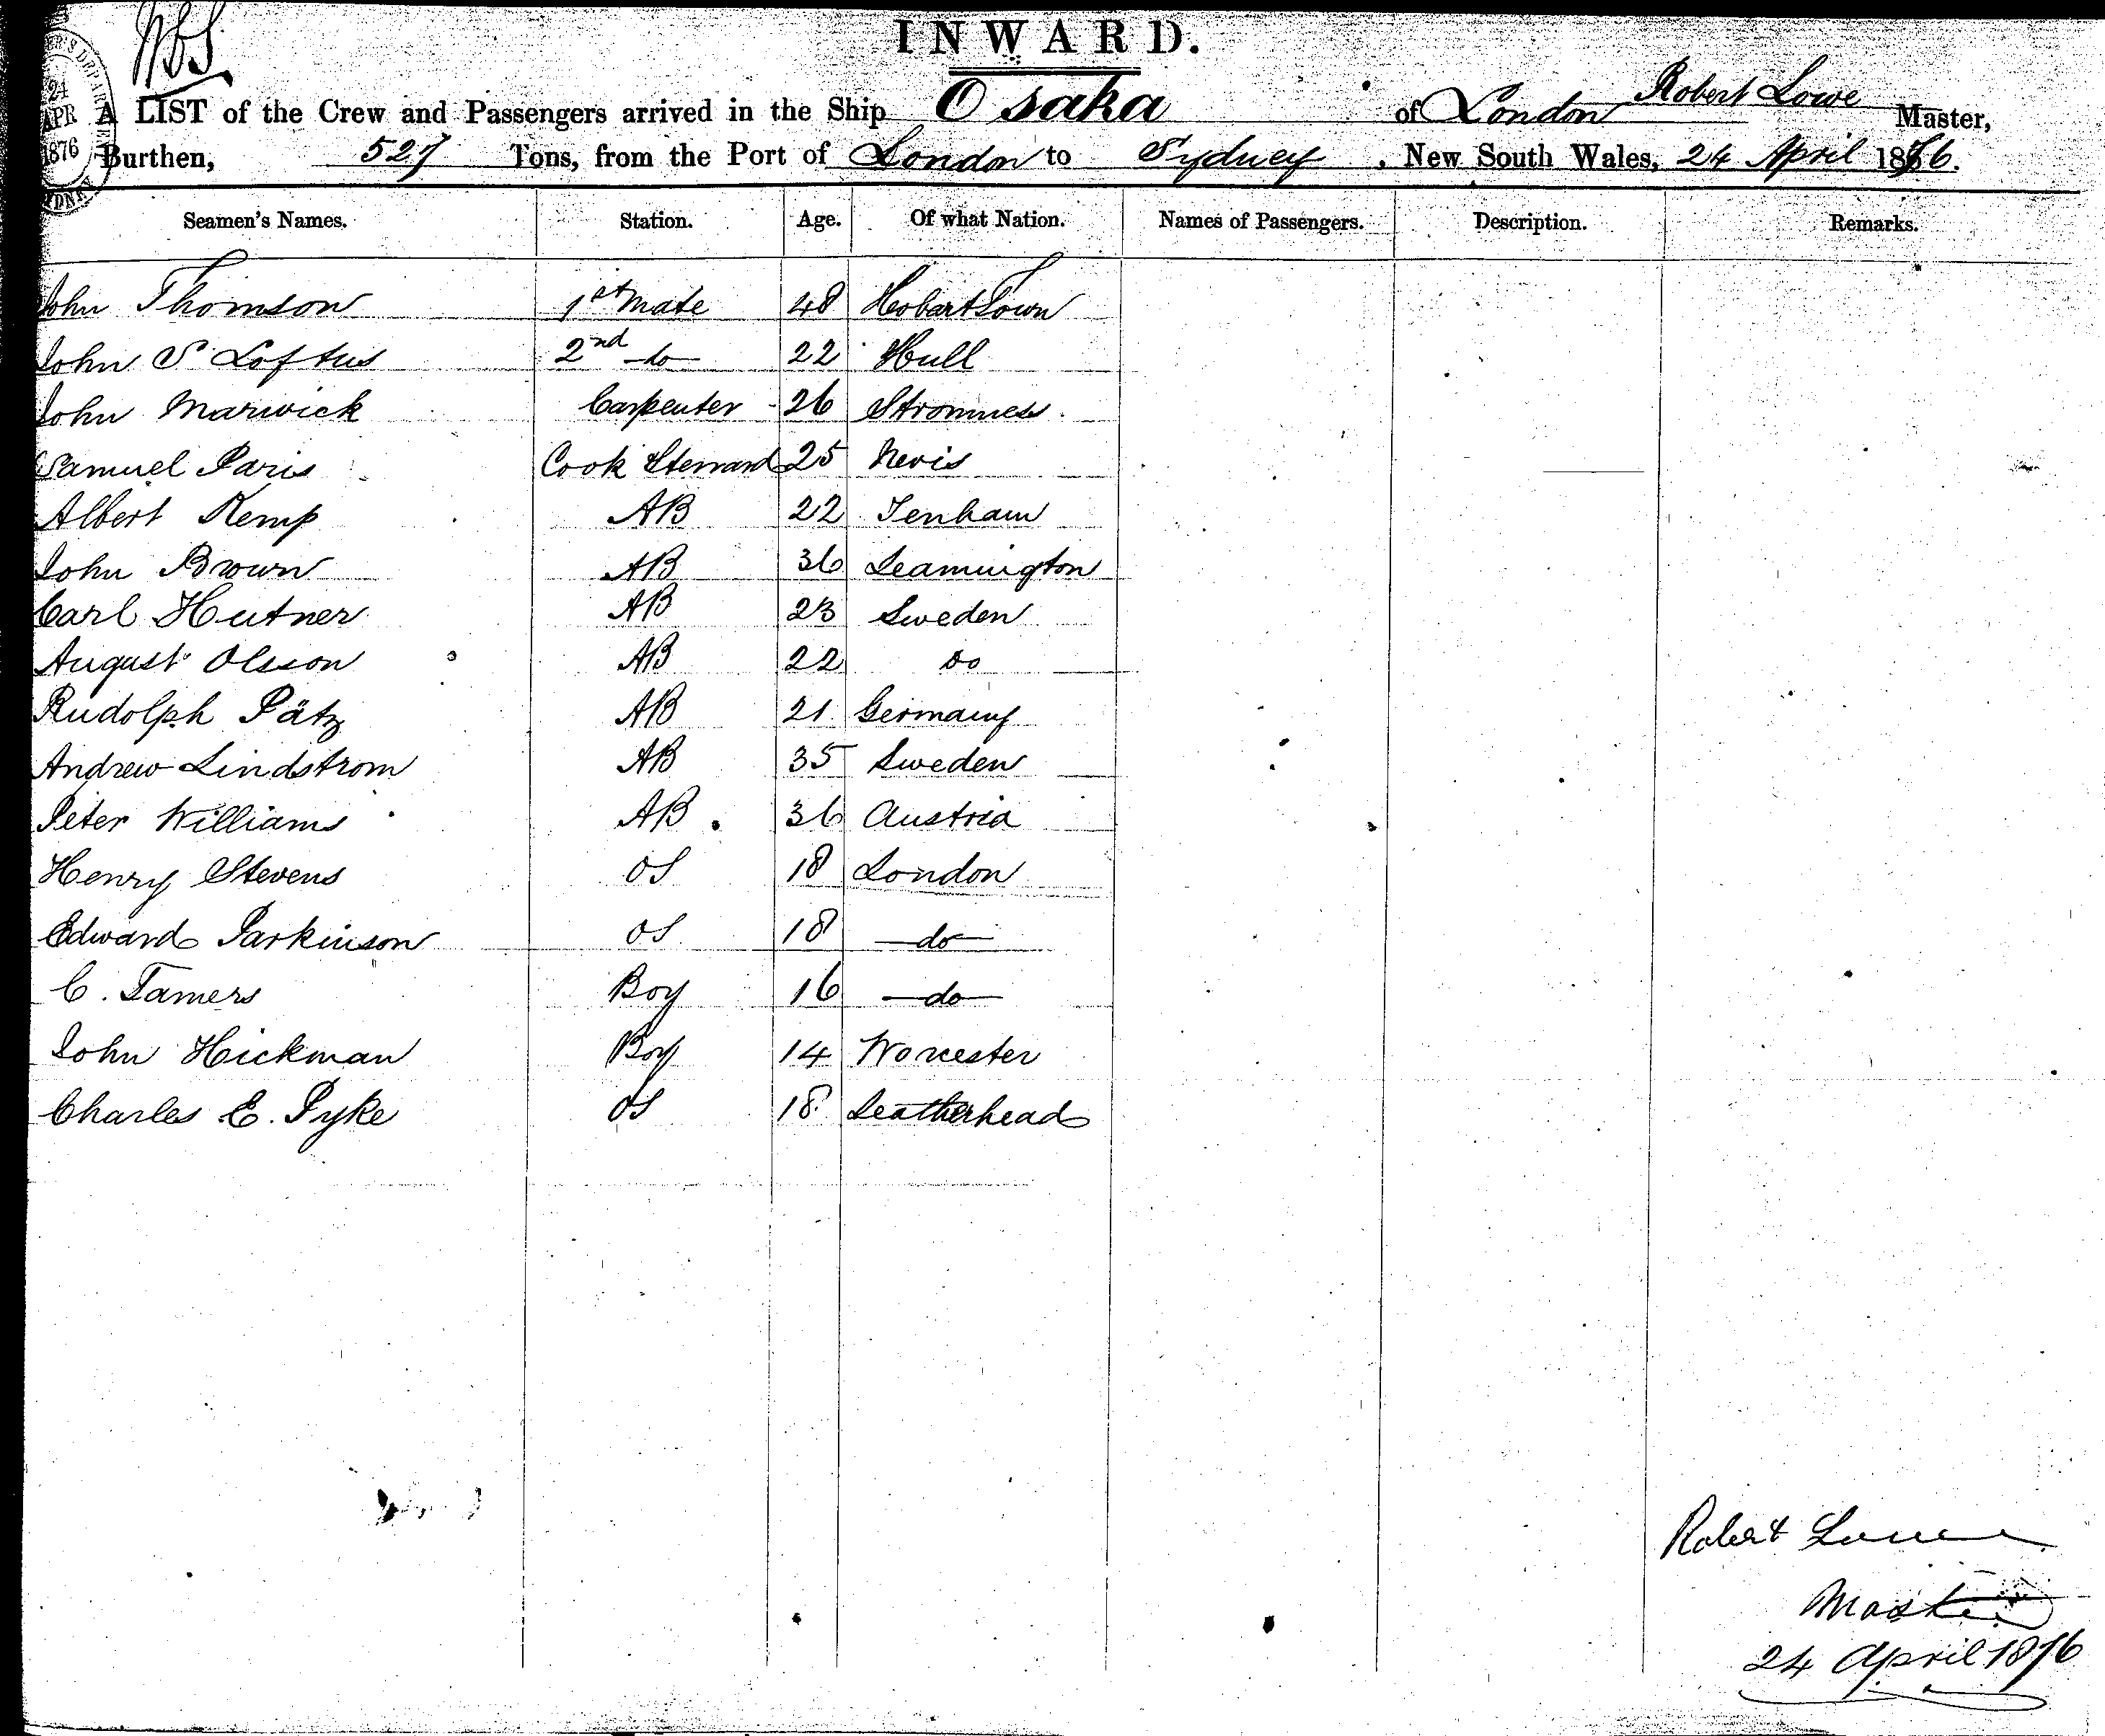 INWARD.
24 APR 1876
A LIST of the Crew and Passengers arrived in the Ship Osaka of London Robert Lowe Master,
Burthen, 527 Tons, from the Port of London to Sydney, New South Wales, 24 April 1876.
Seamen's Names. Station. Age. Of what Nation. Names of Passengers. Description. Remarks.
John Thomson 1st Mate 48 Hobart Town
John S Loftus 2nd do 22 Hull
John Marwick Carpenter 26 Stromness
Samuel Paris Cook Steward 25 Nevis
Albert Kemp AB 22 Tenham
John Brown AB 36 Leamington
Carl Hutner AB 23 Sweden
August Olsson AB 22 Do
Rudolph Pätz AB 21 Germany
Andrew Lindstrom AB 35 Sweden
Peter Williams AB 36 Austria
Henry Stevens OS 18 London
Edward Parkinson OS 18 do
C. Tamers Boy 16 do
John Hickman Boy 14 Worcester
Charles E. Pyke OS 18 Leatherhead
Robert Lowe
Master
24 April 1876